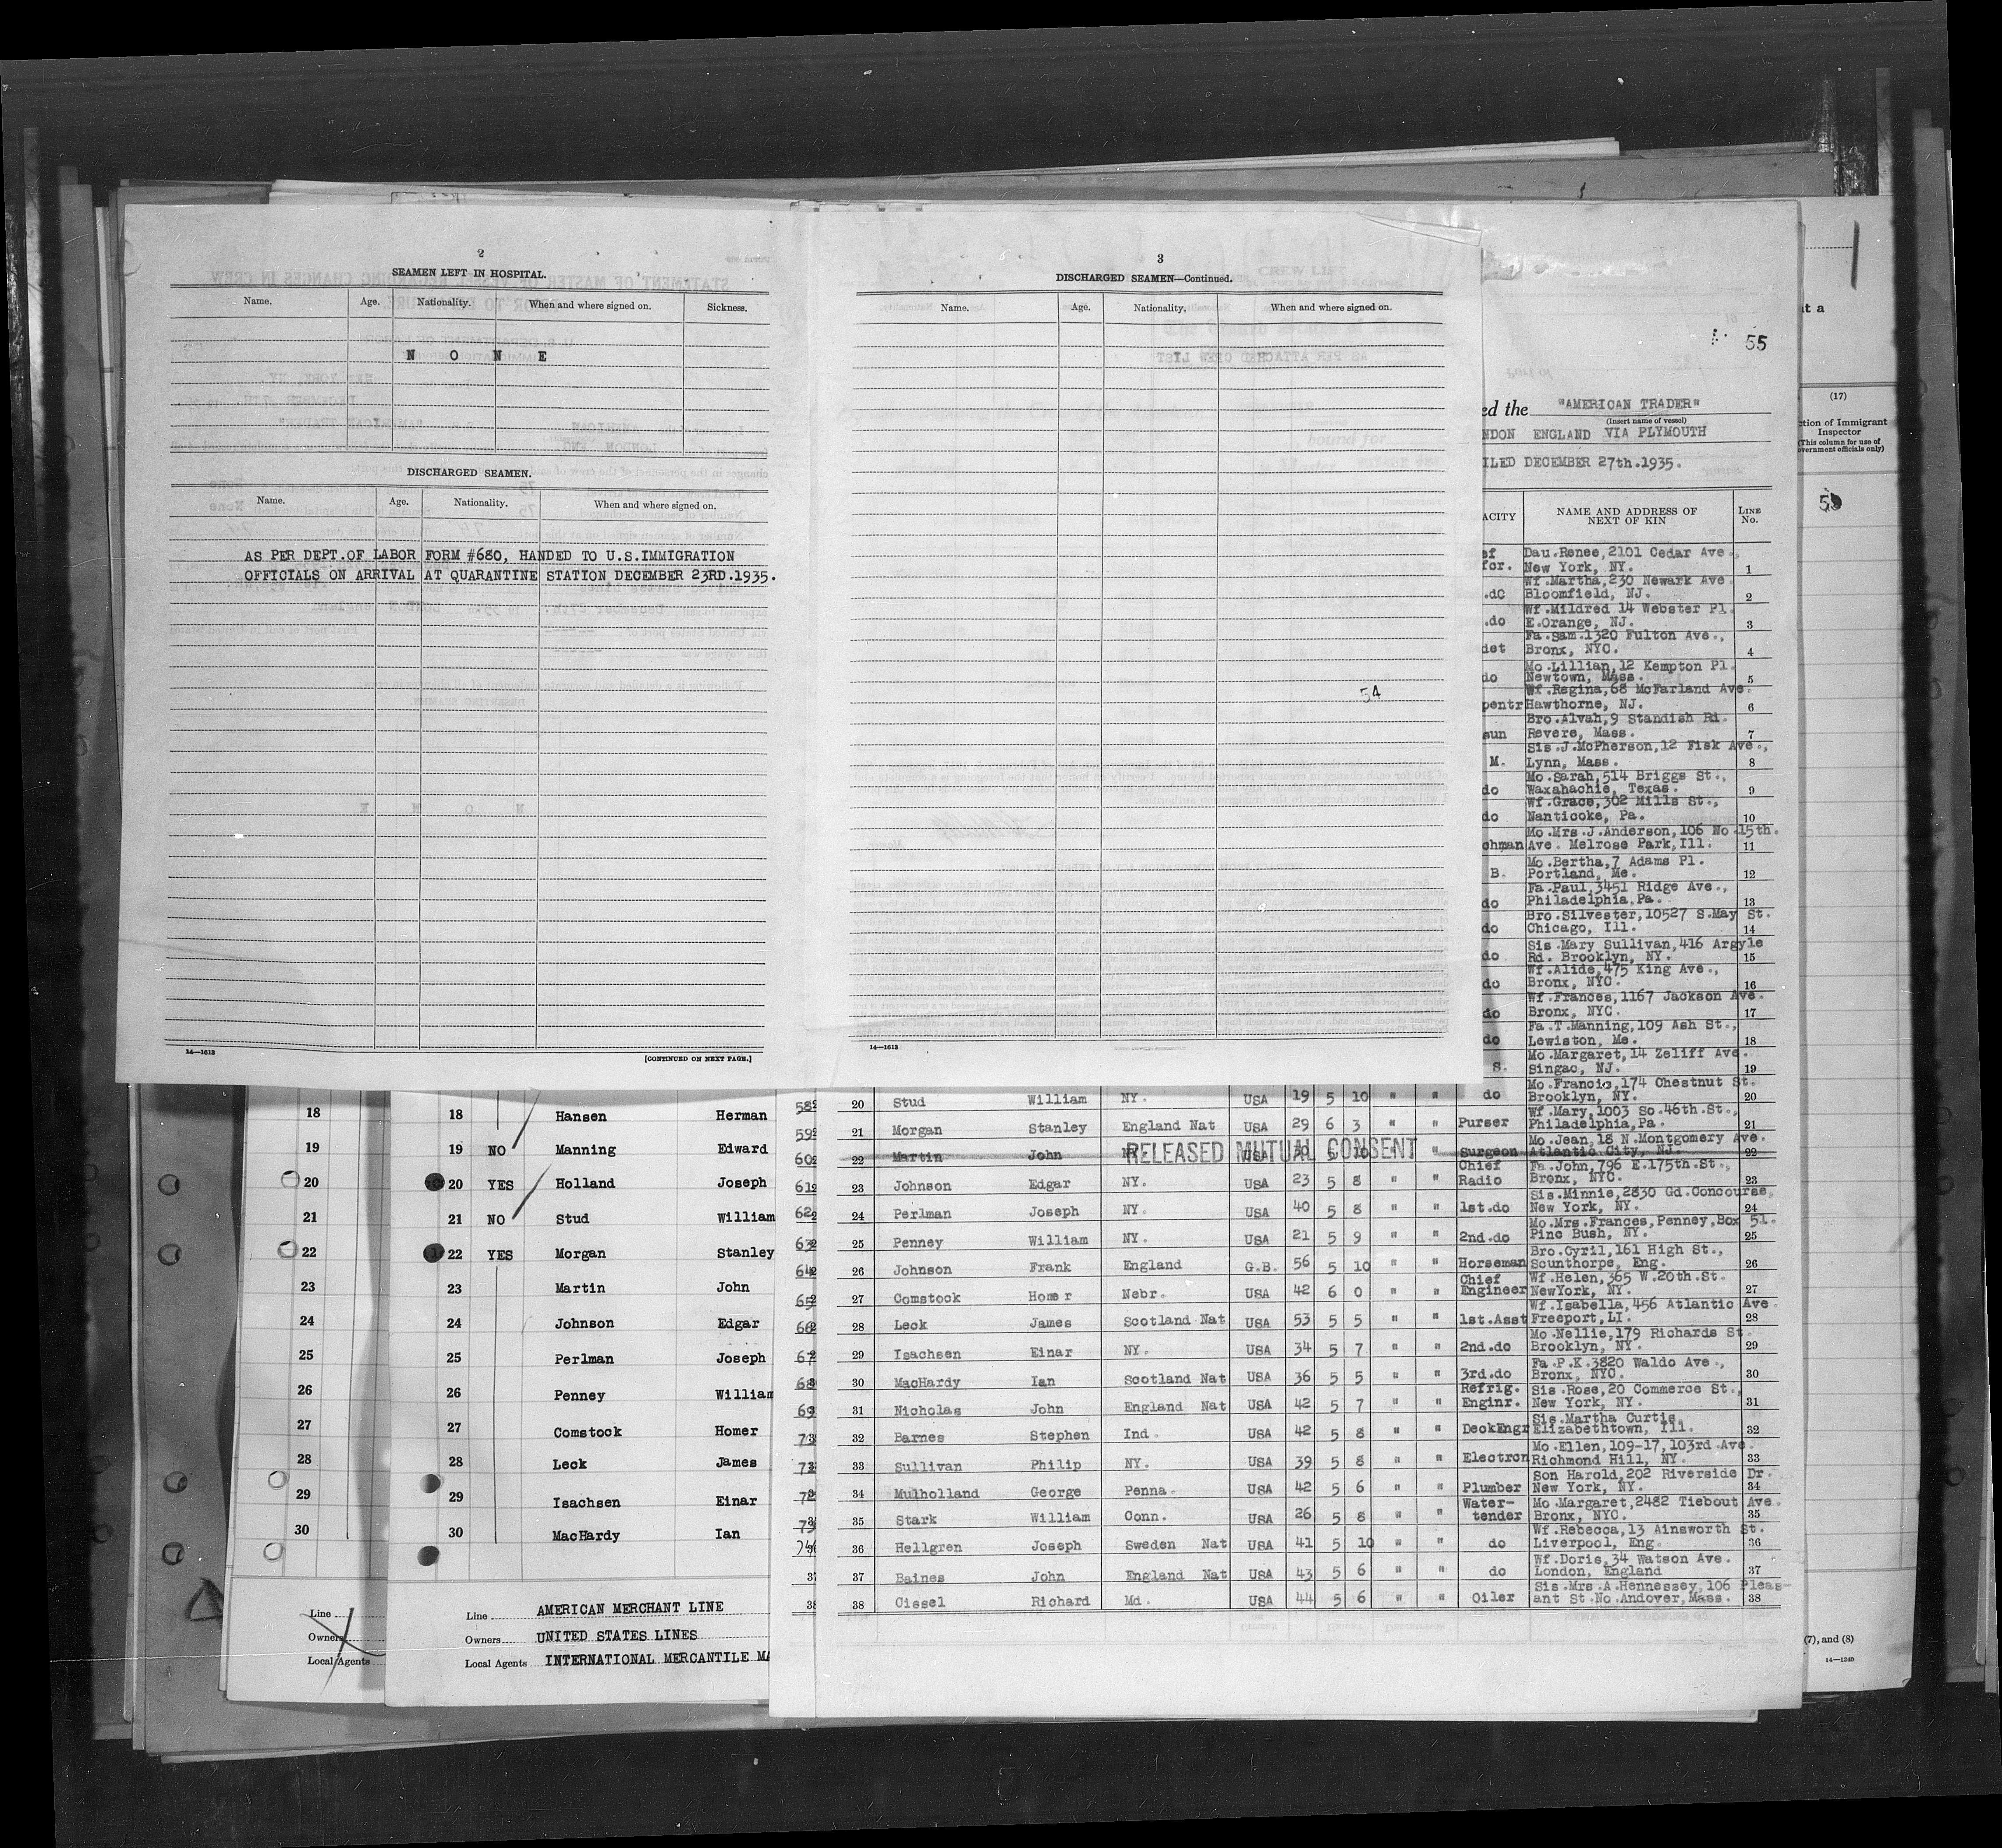 2
SEAMEN LEFT IN HOSPITAL.
Name. Age. Nationality. When and where signed on. Sickness.
N O N E
DISCHARGED SEAMEN.
Name. Age. Nationality. When and where signed on.
AS PER DEPT.OF LABOR FORM #680, HANDED TO U.S.IMMIGRATION
OFFICIALS ON ARRIVAL AT QUARANTINE STATION DECEMBER 23RD.1935.
14—1613
[CONTINUED ON NEXT PAGE.]
3
DISCHARGED SEAMEN—Continued.
Name. Age. Nationality. When and where signed on.
54
14—1613
55
ed the "AMERICAN TRADER"
(Insert name of vessel)
NDON ENGLAND VIA PLYMOUTH
ILED DECEMBER 27th.1935.
ACITY NAME AND ADDRESS OF NEXT OF KIN LINE No.
ef Dau.Renee,2101 Cedar Ave.,
fcr. New York, NY. 1
Wf.Martha,230 Newark Ave.
.do Bloomfield, NJ. 2
Wf.Mildred 14 Webster Pl.
.do E.Orange, NJ. 3
Fa.Sam.1320 Fulton Ave.,
det Bronx, NYC. 4
Mo.Lillian,12 Kempton Pl.
do Newtown, Mass. 5
Wf.Regina,68 McFarland Ave.
pentr Hawthorne, NJ. 6
Bro.Alvah,9 Standish Rd.
sun Revere, Mass. 7
Sis.J.McPherson,12 Fisk Ave.,
M. Lynn, Mass. 8
Mo.Sarah,514 Briggs St.,
do Waxahachie, Texas. 9
Wf.Grace,302 Mills St.,
do Nanticoke, Pa. 10
Mo.Mrs.J.Anderson,106 No.15th.
chman Ave. Melrose Park,Ill. 11
Mo.Bertha,7 Adams Pl.
B. Portland, Me. 12
Fa.Paul,3451 Ridge Ave.,
do Philadelphia,Pa. 13
Bro.Silvester,10527 S.May St.
do Chicago, Ill. 14
Sis.Mary Sullivan,416 Argyle
do Rd. Brooklyn, NY. 15
Wf.Alide,475 King Ave.,
do Bronx, NYC. 16
Wf.Frances,1167 Jackson Ave.
do Bronx, NYC. 17
Fa.T.Manning,109 Ash St.,
do Lewiston, Me. 18
Mo.Margaret,14 Zeliff Ave.
S. Singac, NJ. 19
Mo.Francis,174 Chestnut St.
20 Stud William NY. USA 19 5 10 " " do Brooklyn, NY. 20
Wf.Mary,1003 So.46th.St.,
21 Morgan Stanley England Nat USA 29 6 3 " " Purser Philadelphia,Pa. 21
Mo.Jean,18 N.Montgomery Ave.
22 Martin John USA " Surgeon Atlantic City, NJ. 22
RELEASED MUTUAL CONSENT
Chief Fa.John,796 E.175th.St.,
23 Johnson Edgar NY. USA 23 5 8 " " Radio Bronx, NYC. 23
Sis.Minnie,2830 Gd.Concourse,
24 Perlman Joseph NY. USA 40 5 8 " " 1st.do New York, NY. 24
Mo.Mrs.Frances,Penney,Box 51.
25 Penney William NY. USA 21 5 9 " " 2nd.do Pine Bush, NY. 25
Bro.Cyril,161 High St.,
26 Johnson Frank England G.B. 56 5 10 " " Horseman Scunthorpe, Eng. 26
Chief Wf.Helen,365 W.20th.St.
27 Comstock Homer Nebr. USA 42 6 0 " " Engineer NewYork, NY. 27
Wf.Isabella,456 Atlantic Ave.
28 Leck James Scotland Nat USA 53 5 5 " " 1st.Asst Freeport,LI. 28
Mo.Nellie,179 Richards St.
29 Isachsen Einar NY. USA 34 5 7 " " 2nd.do Brooklyn, NY. 29
Fa.P.K.3820 Waldo Ave.,
30 MacHardy Ian Scotland Nat USA 36 5 5 " " 3rd.do Bronx, NYC. 30
Refrig. Sis.Rose,20 Commerce St.,
31 Nicholas John England Nat USA 42 5 7 " " Enginr. New York, NY. 31
Sis.Martha Curtis,
32 Barnes Stephen Ind. USA 42 5 8 " " DeckEngr Elizabethtown, Ill. 32
Mo.Ellen,109-17,103rd.Ave.
33 Sullivan Philip NY. USA 39 5 8 " " Electron Richmond Hill, NY. 33
Son Harold,202 Riverside Dr.
34 Mulholland George Penna. USA 42 5 6 " " Plumber New York, NY. 34
Water- Mo.Margaret,2482 Tiebout Ave.
35 Stark William Conn. USA 26 5 8 " " tender Bronx, NYC. 35
Wf.Rebecca,13 Ainsworth St.
36 Hellgren Joseph Sweden Nat USA 41 5 10 " " do Liverpool, Eng. 36
Wf.Doris,34 Watson Ave.
37 Baines John England Nat USA 43 5 6 " " do London, England 37
Sis.Mrs.A.Hennessey,106 Pleas-
38 Cissel Richard Md. USA 44 5 6 " " Oiler ant St.No.Andover,Mass. 38
18 Hansen Herman
19 NO Manning Edward
20 YES Holland Joseph
21 NO Stud William
22 YES Morgan Stanley
23 Martin John
24 Johnson Edgar
25 Perlman Joseph
26 Penney William
27 Comstock Homer
28 Leck James
29 Isachsen Einar
30 MacHardy Ian
Line AMERICAN MERCHANT LINE
Owners UNITED STATES LINES
Local Agents INTERNATIONAL MERCANTILE MA
18
19
20
21
22
23
24
25
26
27
28
29
30
Line
Owners
Local Agents
at a
(17)
ction of Immigrant
Inspector
(This column for use of
overnment officials only)
(7), and (8)
14—1240